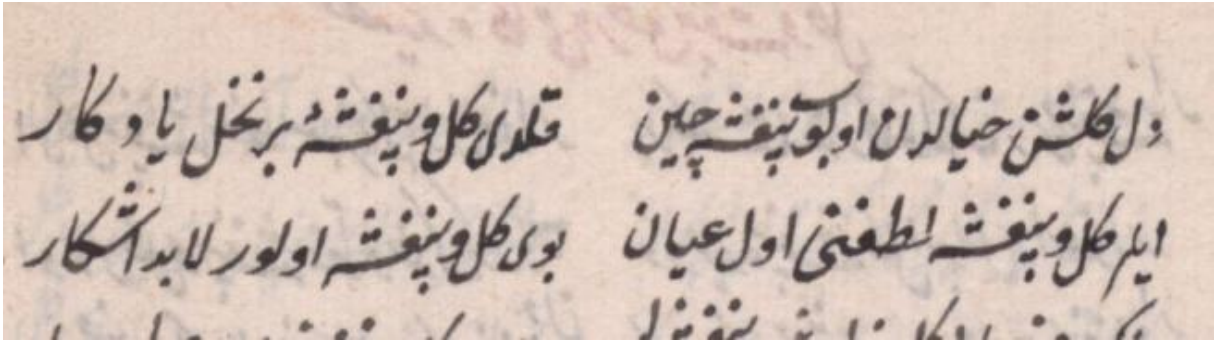 دل گلشن خیالدن اولوب بنفشه چین قلدی گل و بنفشهٔ بر نخل یادگار
ایلر گل و بنفشه لطفنی اول عیان بوی گل و بنفشه اولور لابد اشکار